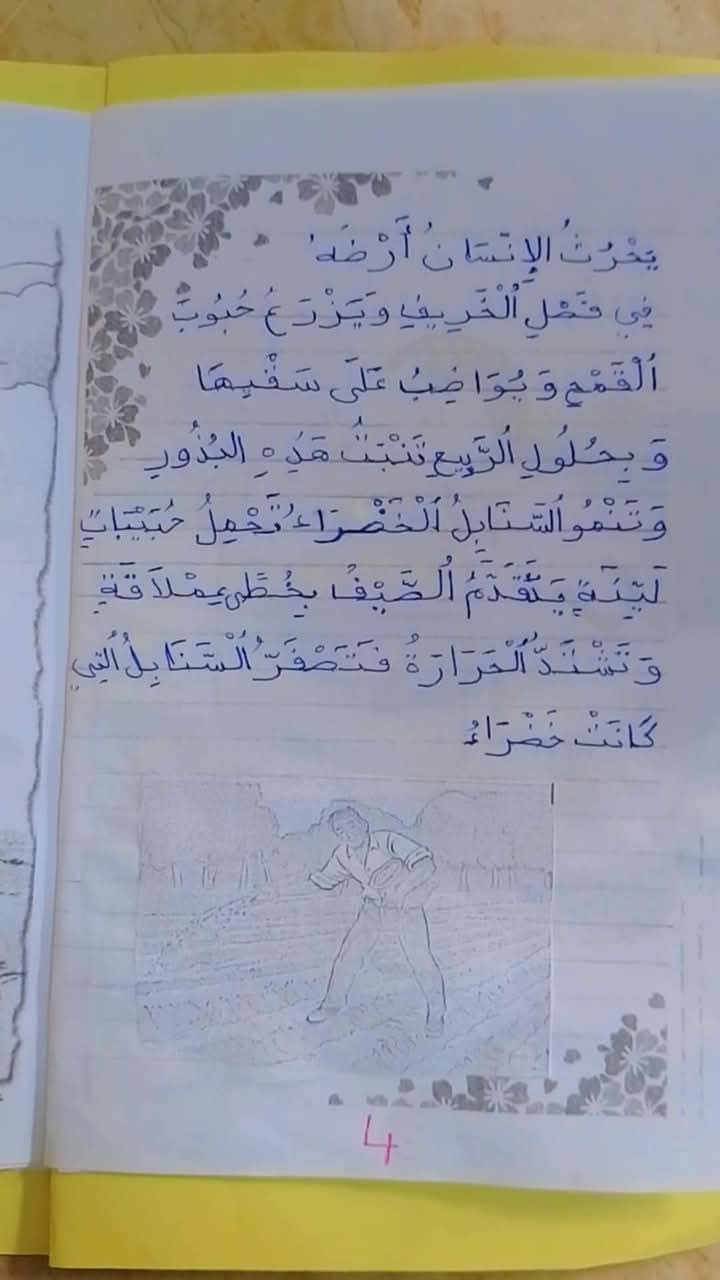 يَحْرُثُ الإِنْسَانُ أَرْضَهُ
فِي فَصْلِ ٱلْخَرِيفِ وَيَزْرَعُ حُبُوبَ
ٱلْقَمْحِ وَيُوَاضِبُ عَلَى سَقْيِهَا
وَبِحُلُولِ ٱلرَّبِيعِ تَنْبَتُ هَذِهِ البُذُورِ
وَتَنْمُو ٱلسَّنَابِلُ ٱلْخَضْرَاءُ تَحْمِلُ حُبَيْبَاتٍ
لَيِّنَةٍ يَتَقَدَّمُ ٱلصَّيْفُ بِخُطًى عِمْلَاقَةٍ
وَتَشْتَدُّ ٱلْحَرَارَةُ فَتَصْفَرُّ ٱلْسَّنَابِلُ ٱلتِي
كَانَتْ خَضْرَاءُ
4